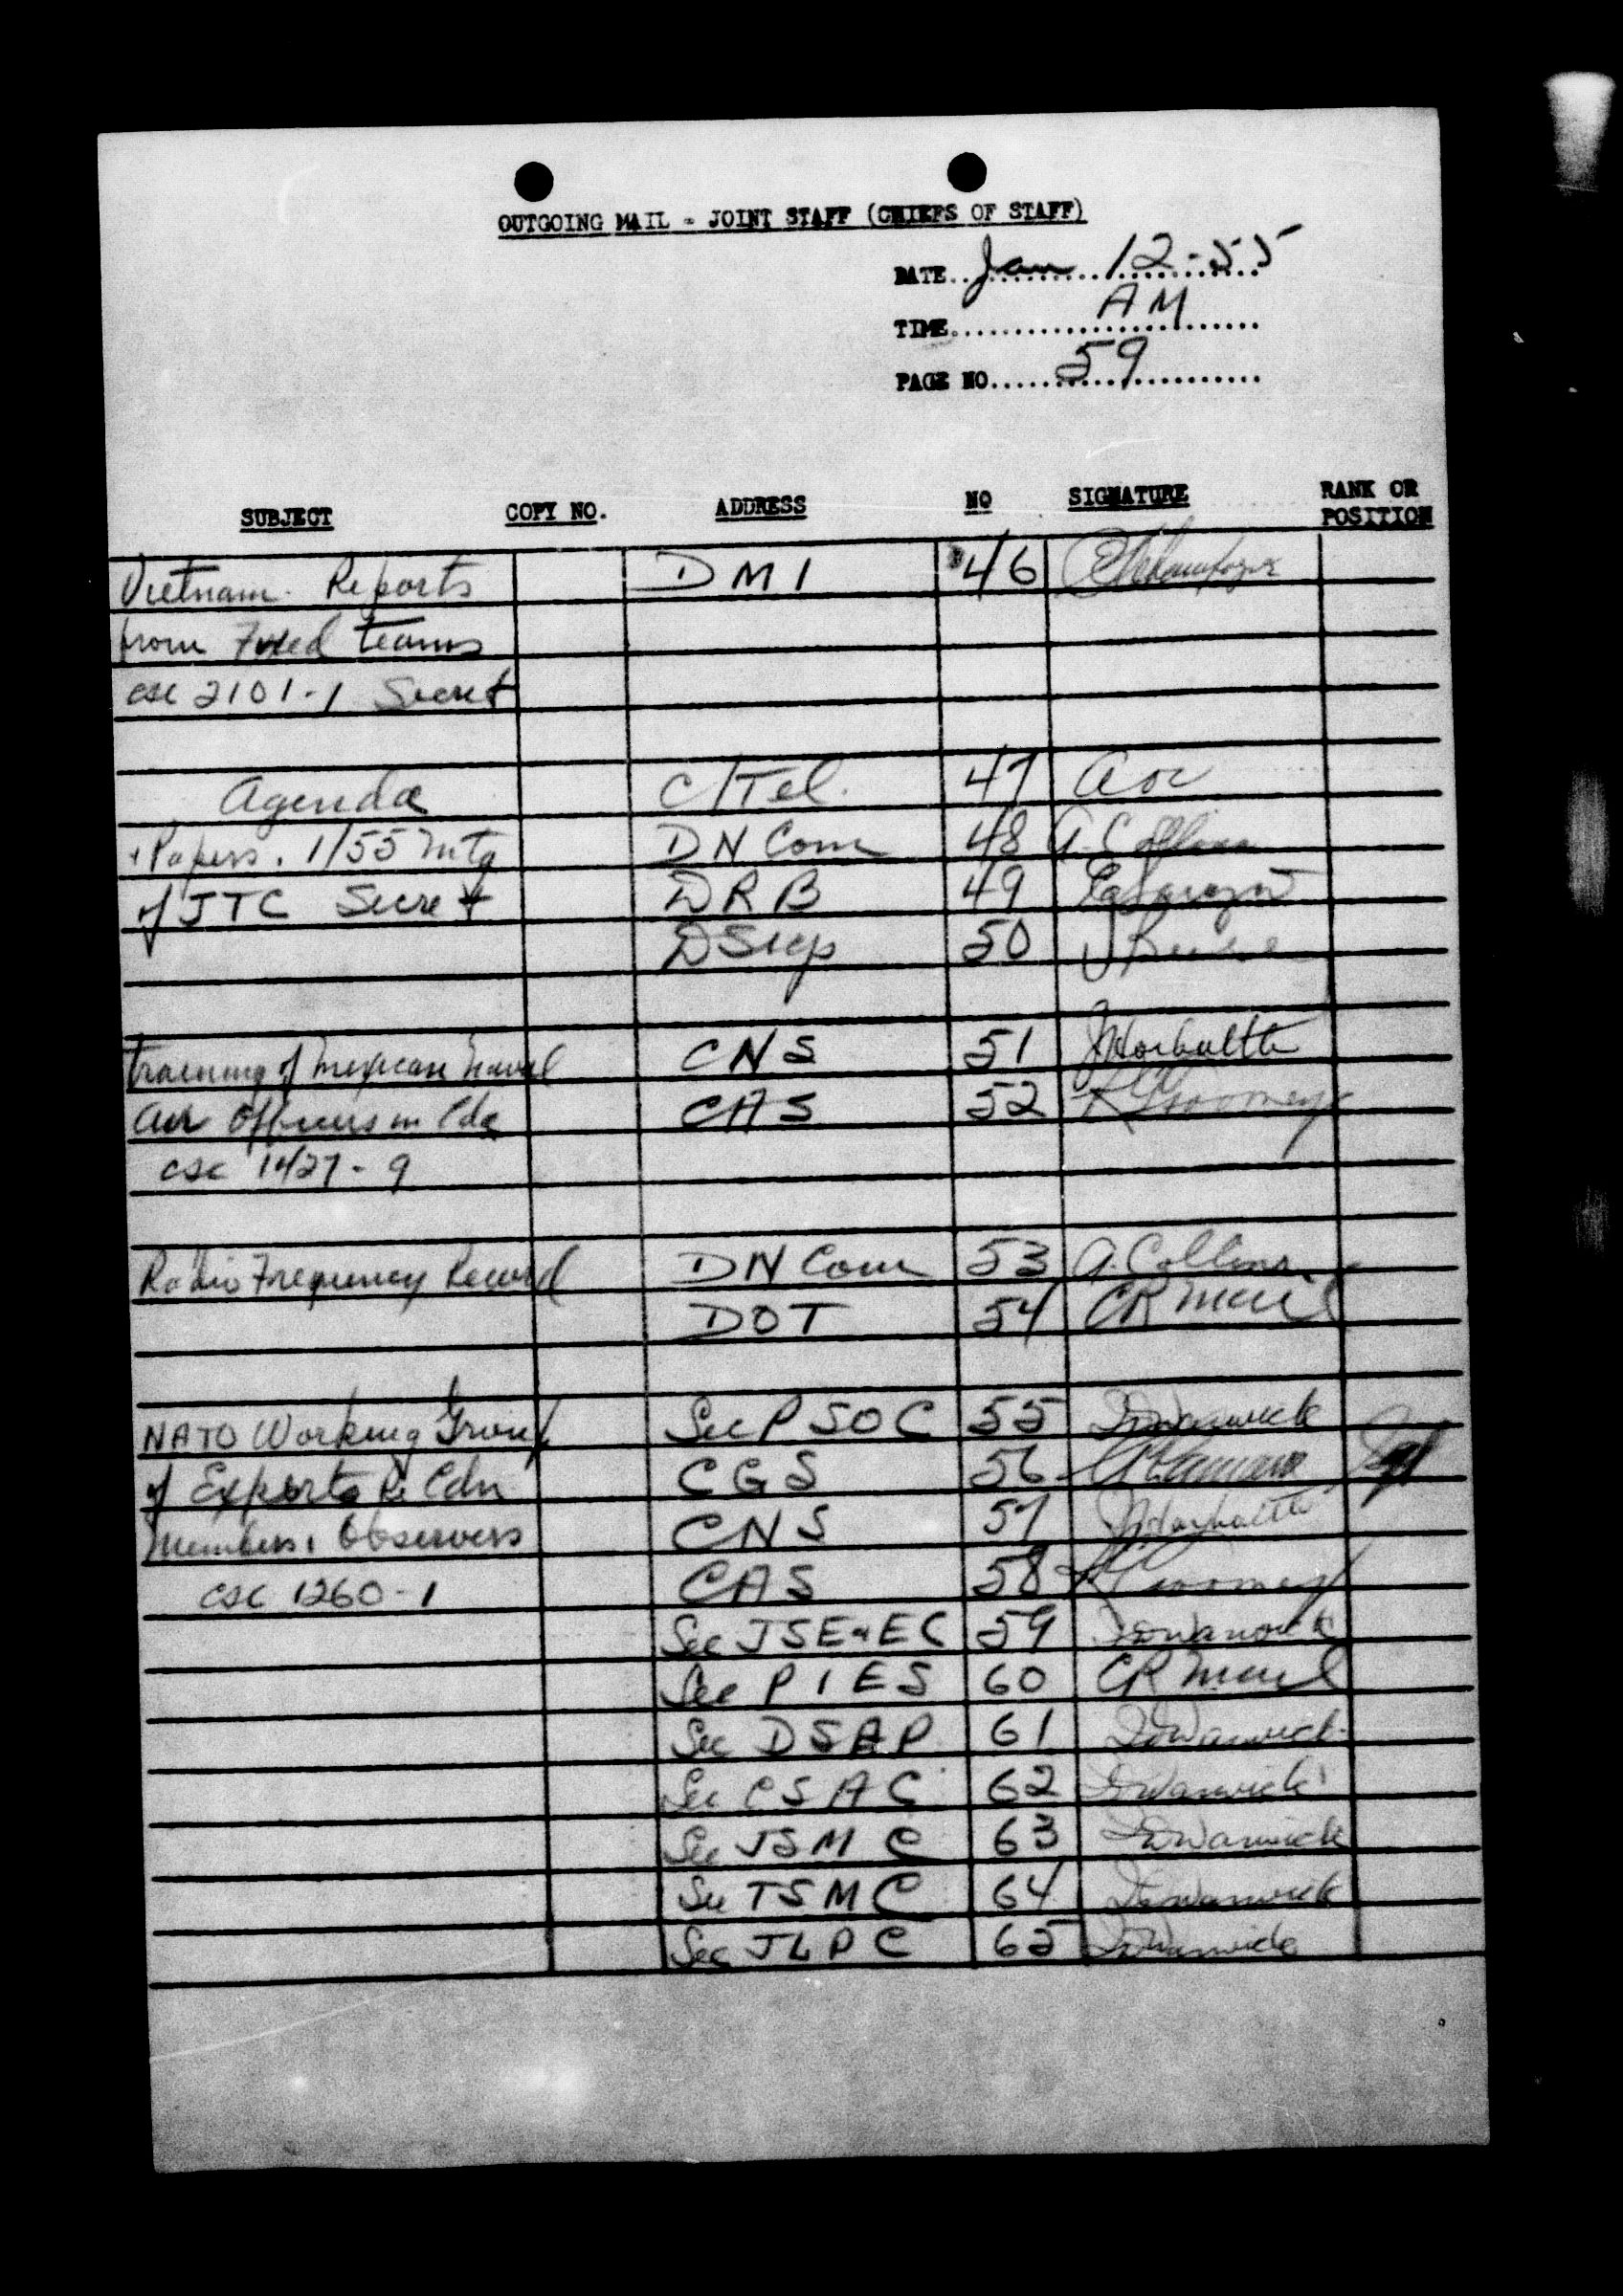 OUTGOING MAIL - JOINT STAFF (CHIEFS OF STAFF)
DATE Jan 12-55
TIME AM
PAGE NO 59
SUBJECT COPY NO. ADDRESS NO SIGNATURE RANK OR POSITION
Vietnam Reports DMI 46
from Fixed teams
csc 2101-1 Secret
Agenda C/Tel. 47
+ Papers. 1/55 Mtg DN Com 48 A. Collins
of JTC Secret DRB 49
DSigs 50
Training of Mexican Naval CNS 51
Air Officers in Cda CAS 52
csc 1427-9
Radio Frequency Record DN Com 53 A. Collins
DOT 54
NATO Working Group Sec PSOC 55 Warwick
of Experts Re Cdn CGS 56
Members, Observers CNS 57
csc 1260-1 CAS 58
Sec JSE&EC 59 Warwick
Sec PIES 60
Sec DSAP 61 Warwick
Sec CSAC 62 Warwick
Sec JSMC 63 Warwick
Sec TSMC 64 Warwick
Sec JLPC 65 Warwick